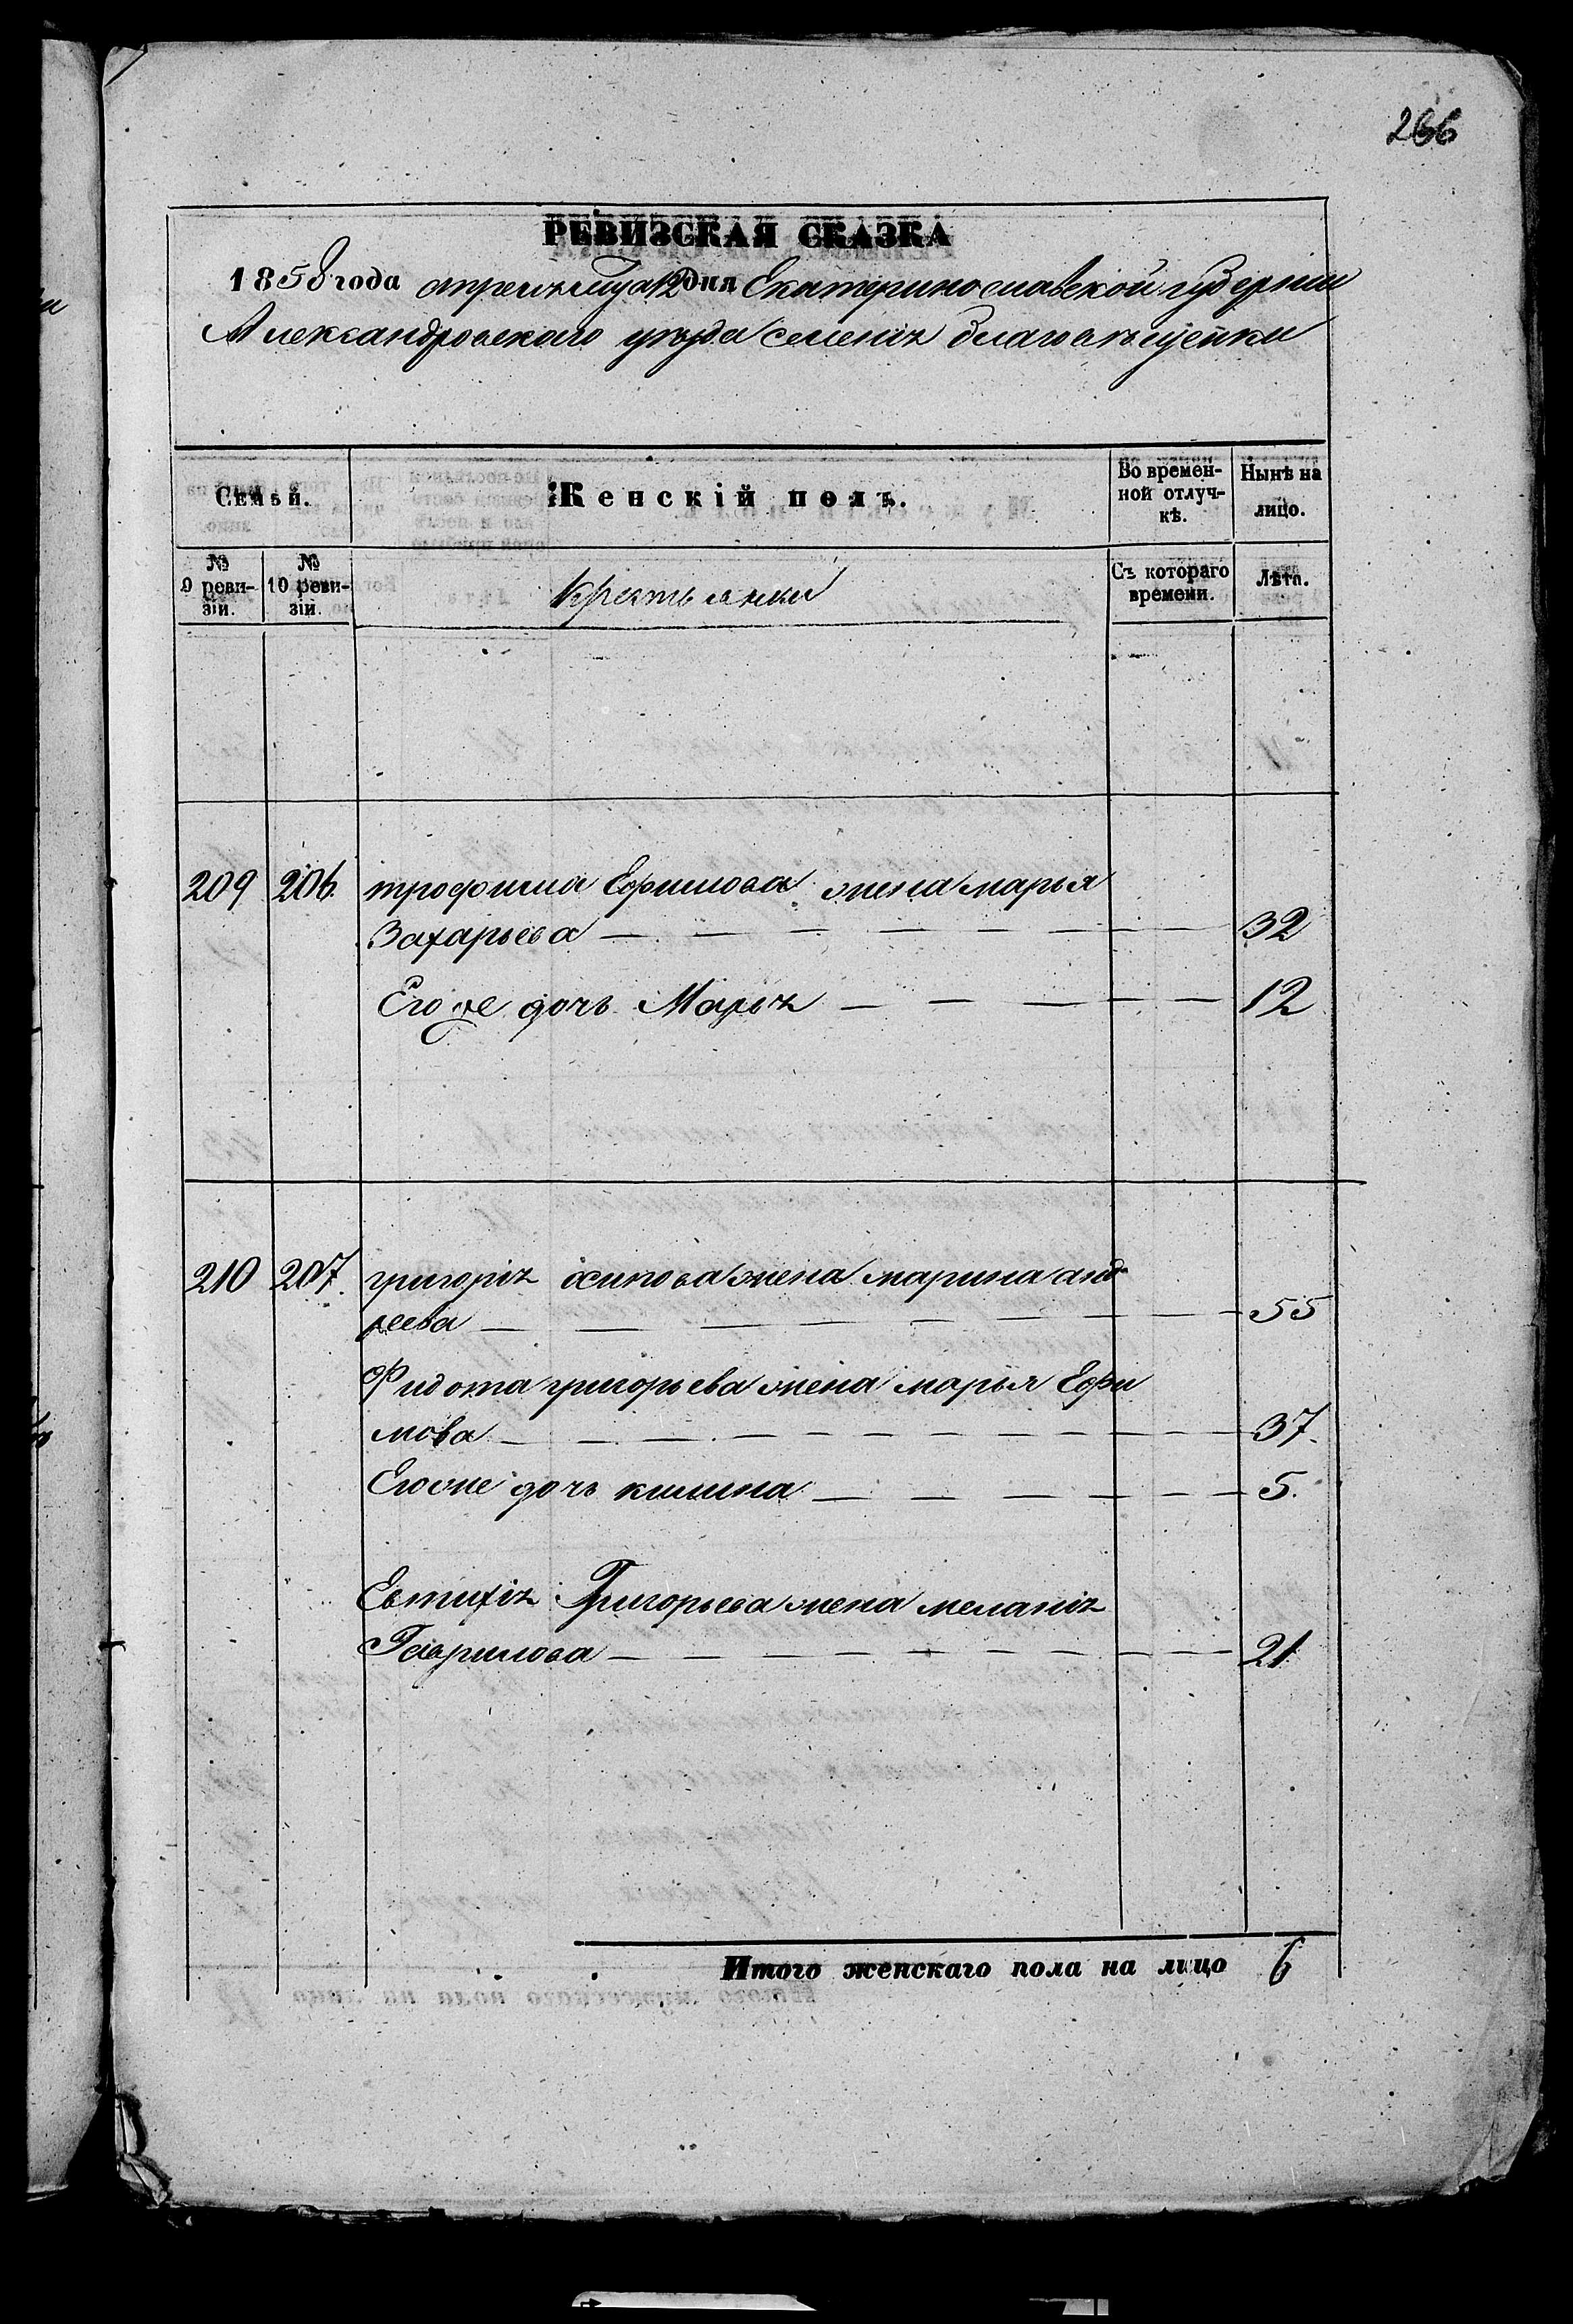 266
РЕВИЗСКАЯ СКАЗКА
1858 года апреля м-ца 12 дня Екатеринославской губерніи
Александровскаго уѣзда селенія благовѣщенки
Семьи. Женскій полъ. Во времен-ной отлуч-кѣ. Нынѣ на лицо.
№ 9 реви-зіи. № 10 реви-зіи. Крестьянки Съ котораго времени. Лѣта.
209 206. трофима Ефимова жена марья
Захарьева 32
Его же дочь Марья 12
210 207. григорія осипова жена марина анд
реева 55
Фидота григорьева жена марья Ефи
мова 37.
Егоже дочь килина 5.
Евтихія Григорьева жена меланія
Гаврилова 21
Итого женскаго пола на лицо 6